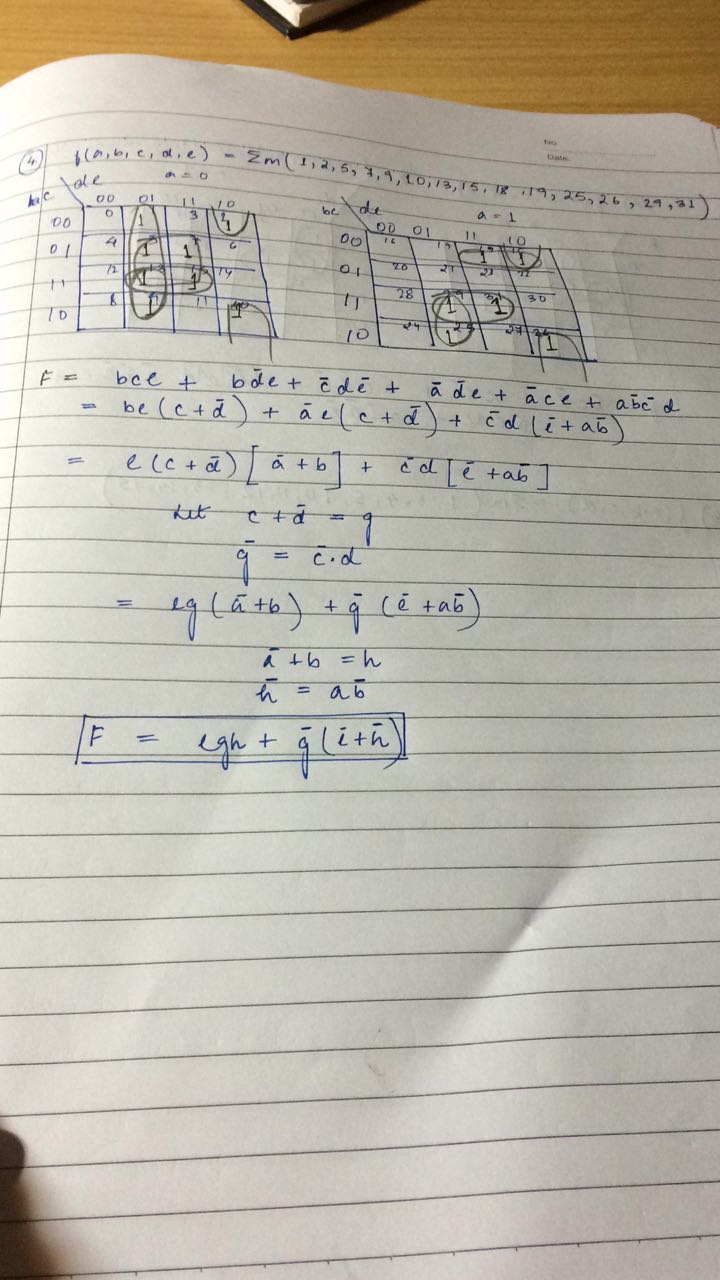 No.
Date.
④ f(a,b,c,d,e) = Σm(1,2,5,7,9,10,13,15,18,19,25,26,29,31)
a=0
a=1
bc \ de 00 01 11 10
00 0 1 3 1
01 4 1 1 6
11 12 1 1 14
10 8 1 11 1
bc \ de 00 01 11 10
00 16 1 1
01 20 21 23 22
11 28 1 1 30
10 24 1 27 1
F = bce + bd̄e + c̄dē + ād̄e + āce + ab̄c̄d
= be(c+d̄) + āe(c+d̄) + c̄d(ē+ab̄)
= e(c+d̄)[ā+b] + c̄d[ē+ab̄]
Let c+d̄ = g
ḡ = c̄.d
= eg(ā+b) + ḡ(ē+ab̄)
ā+b = h
h̄ = ab̄
F = egh + ḡ(ē+h̄)